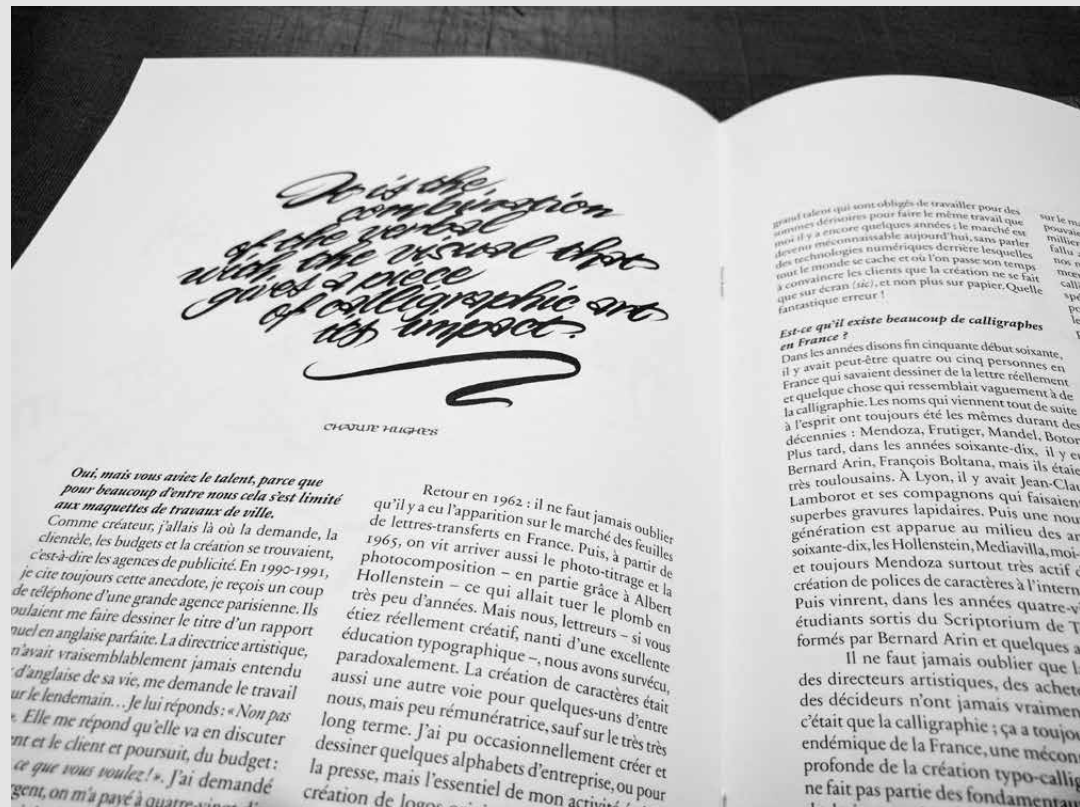 It is the
combination
of the verbal
with the visual that
gives a piece
of calligraphic art
its impact.
CHARLIE HUGHES
Oui, mais vous aviez le talent, parce que
pour beaucoup d'entre nous cela s'est limité
aux maquettes de travaux de ville.
Comme créateur, j'allais là où la demande, la
clientèle, les budgets et la création se trouvaient,
c'est-à-dire les agences de publicité. En 1990-1991,
je cite toujours cette anecdote, je reçois un coup
de téléphone d'une grande agence parisienne. Ils
me faire dessiner le titre d'un rapport
en anglaise parfaite. La directrice artistique,
n'avait vraisemblablement jamais entendu
d'anglaise de sa vie, me demande le travail
le lendemain... Je lui réponds : « Non pas
Elle me répond qu'elle va en discuter
et le client et poursuit, du budget :
ce que vous voulez ! ». J'ai demandé
on m'a payé à
Retour en 1962 : il ne faut jamais oublier
qu'il y a eu l'apparition sur le marché des feuilles
de lettres-transferts en France. Puis, à partir de
1965, on vit arriver aussi le photo-titrage et la
photocomposition – en partie grâce à Albert
Hollenstein – ce qui allait tuer le plomb en
très peu d'années. Mais nous, lettreurs – si vous
étiez réellement créatif, nanti d'une excellente
éducation typographique –, nous avons survécu,
paradoxalement. La création de caractères était
aussi une autre voie pour quelques-uns d'entre
nous, mais peu rémunératrice, sauf sur le très très
long terme. J'ai pu occasionnellement créer et
dessiner quelques alphabets d'entreprise, ou pour
la presse, mais l'essentiel de mon activité
création de logos
grand talent qui sont obligés de travailler pour des
sommes dérisoires pour faire le même travail que
moi il y a encore quelques années ; le marché est
devenu méconnaissable aujourd'hui, sans parler
des technologies numériques derrière lesquelles
tout le monde se cache et où l'on passe son temps
à convaincre les clients que la création ne se fait
que sur écran (sic), et non plus sur papier. Quelle
fantastique erreur !
Est-ce qu'il existe beaucoup de calligraphes
en France ?
Dans les années disons fin cinquante début soixante,
il y avait peut-être quatre ou cinq personnes en
France qui savaient dessiner de la lettre réellement
et quelque chose qui ressemblait vaguement à de
la calligraphie. Les noms qui viennent tout de suite
à l'esprit ont toujours été les mêmes durant des
décennies : Mendoza, Frutiger, Mandel,
Plus tard, dans les années soixante-dix, il y
Bernard Arin, François Boltana, mais ils
très toulousains. À Lyon, il y avait
Lamborot et ses compagnons qui
superbes gravures lapidaires. Puis une
génération est apparue au milieu des
soixante-dix, les Hollenstein, Mediavilla, moi-
et toujours Mendoza surtout très actif
création de polices de caractères à
Puis vinrent, dans les années
étudiants sortis du Scriptorium de
formés par Bernard Arin et quelques
Il ne faut jamais oublier que
des directeurs artistiques, des
des décideurs n'ont jamais
c'était que la calligraphie ; ça a
endémique de la France, une
profonde de la création
ne fait pas partie des
sur le